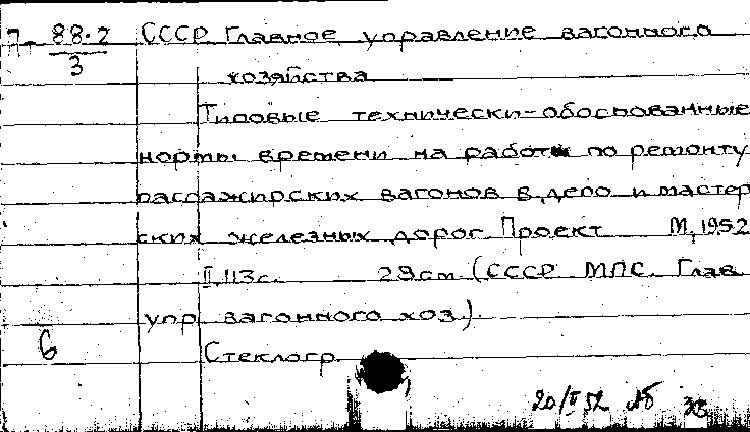 П- 88-2 СССР Главное управление вагонного
3
хозяйства
Типовые технически-обоснованные
нормы времени на работы по ремонту
пассажирских вагонов в депо и мастер
ских железных дорог Проект М, 1952
II, 113с. 29см (СССР МПС. Глав
упр вагонного хоз.)
6
Стеклогр.
20/II 52